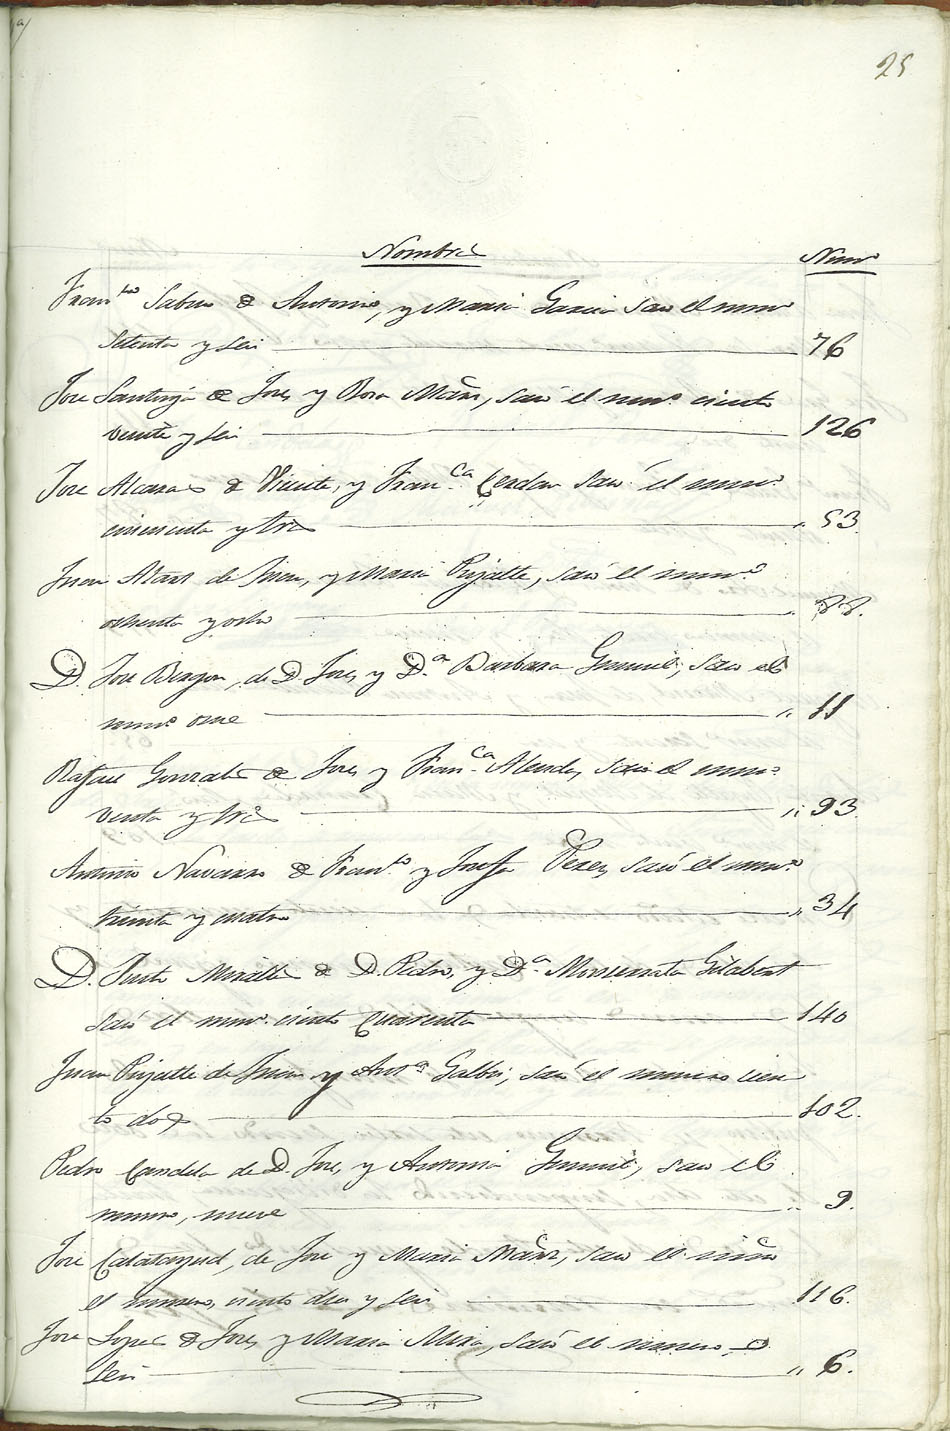 25
Nombres Numº
Franco Sabuco de Antonio, y Maria Garcia saco el numº
setenta y seis 76
Jose de Jose, y Rosa Mañz, sacó el numº ciento
veinte y seis 126
Jose Alcaraz de Vicente, y Franca Cerdan sacó el numº
cincuenta y tres „ 53.
Juan Alanz de Juan, y Maria Pujalte, sacó el numº
ochenta y ocho „ 88.
D. Jose de D. Jose, y Dª Barbara Gumiel, saco el
numº once „ 11
Rafael Gonzalez de Jose, y Franca Mendez sacó el numº
venta y tres „ 93.
Antonio Navarro de Franco y Josefa Perez, sacó el numº
treinta y cuatro „ 34
D. Justo Miralles de D. Pedro, y Dª Monserrata Gilabert
sacó el numº ciento cuarenta 140
Juan Pujalte de Juan y Antª Galbis, sacó el numero cien
to dos 102.
Pedro Candela de D. Jose, y Antonia Gumiel, saco el
numero, nueve „ 9.
Jose Calatayud, de Jose y Maria Mañz, saco el
el numero, ciento diez y seis 116.
Jose Lopez de Jose, y Maria Mira, sacó el numero
seis „ 6.